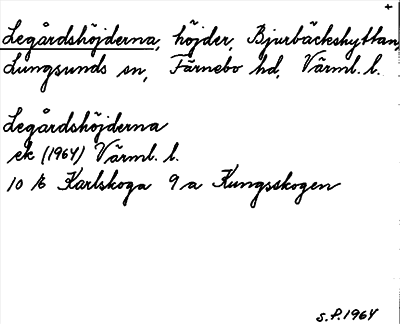 +
Legårdshöjderna, höjder, Bjurbäckshyttan,
Lungsunds sn, Färnebo hd, Värml. l.
Legårdshöjderna
ek (1964) Värml. l.
10 E Karlskoga 9 a Kungsskogen
S.P. 1964